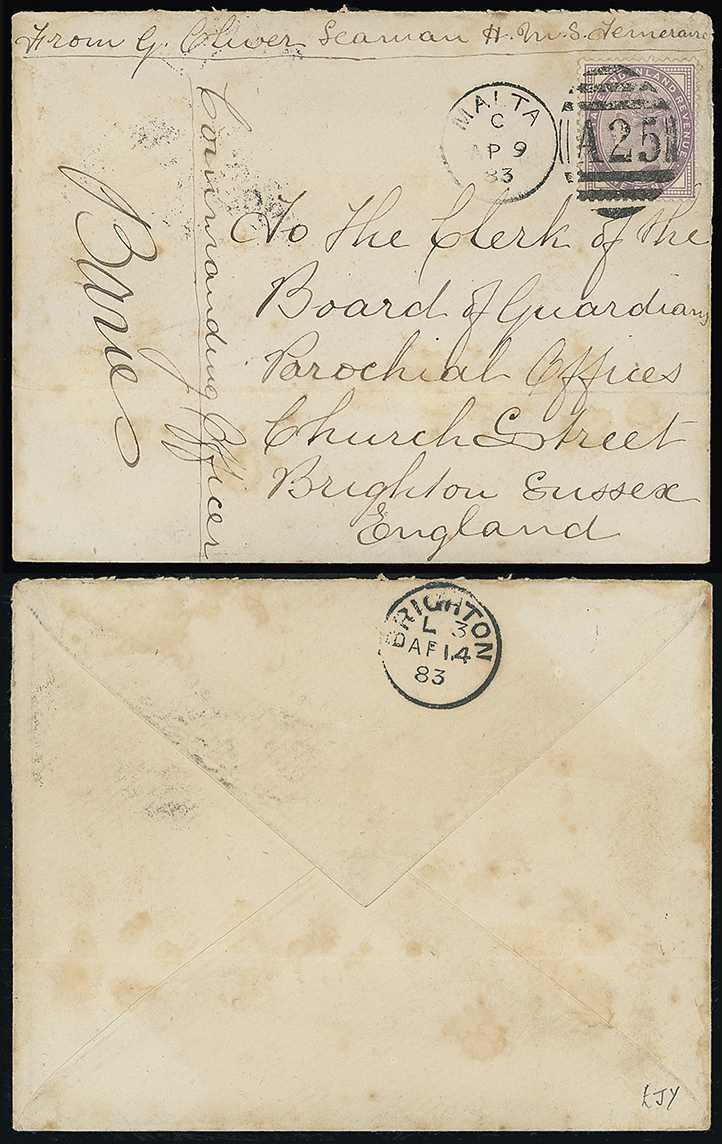 From G. Oliver Seaman H.M.S. Temeraire
Commanding Officer
MALTA
C
AP 9
83
AND INLAND REVENUE
A25
To The Clerk of the
Board of Guardians
Parochial Offices
Church Street
Brighton Sussex
England
BRIGHTON
L 3
AP 14
83
£JY